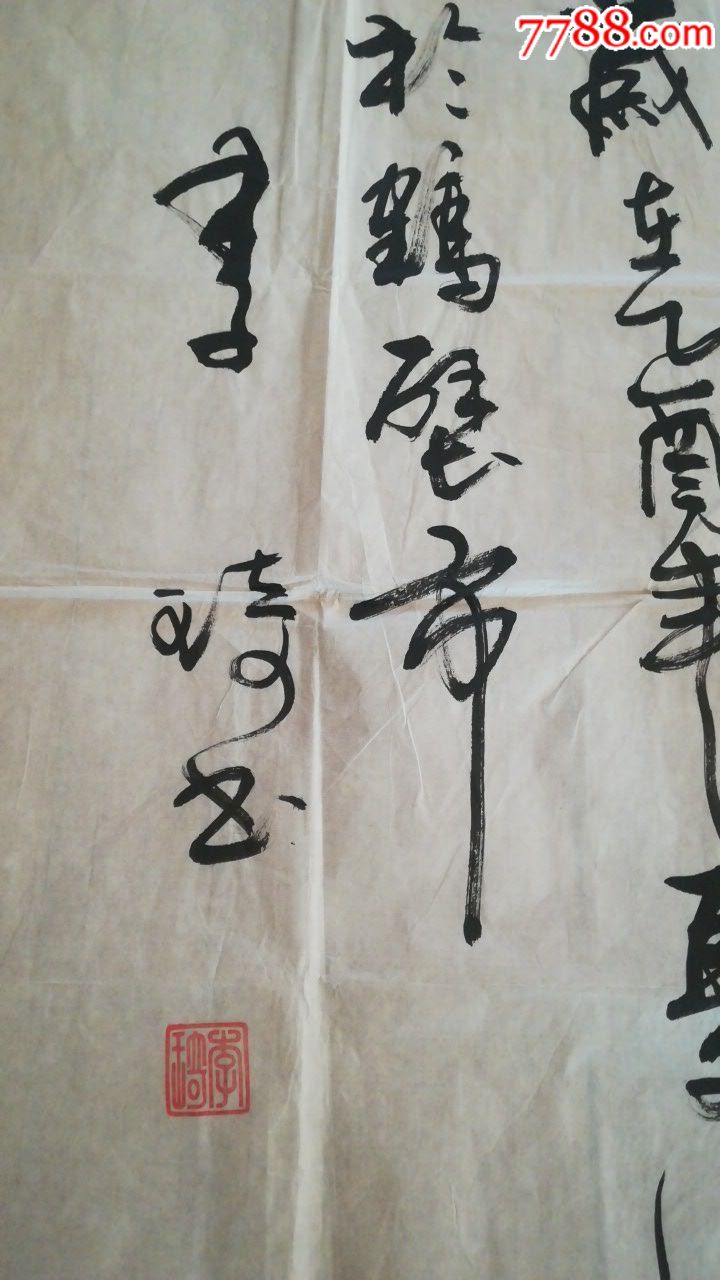 7788.com
歲在乙酉年
於鶴壁市
李琦书
李琦